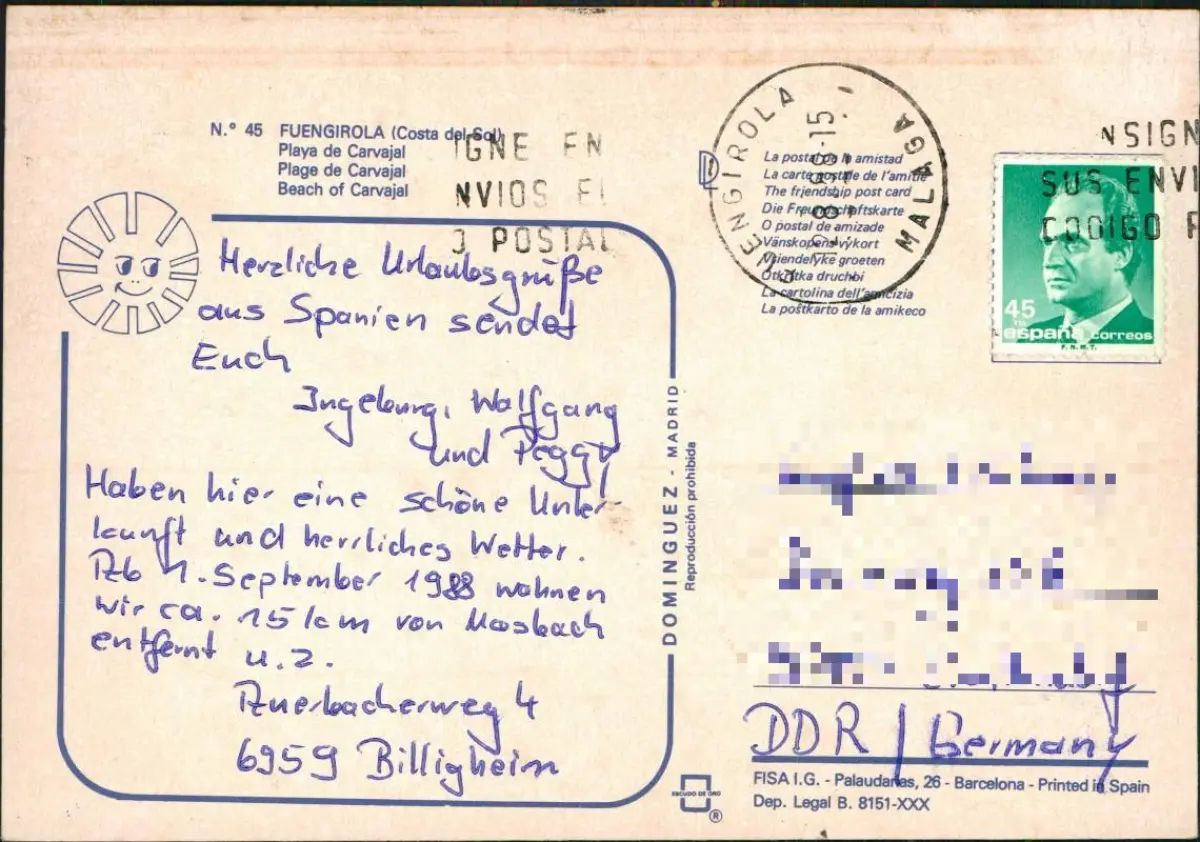 N.º 45 FUENGIROLA (Costa del Sol)
Playa de Carvajal
Plage de Carvajal
Beach of Carvajal
IGNE EN
NVIOS EL
O POSTAL
Herzliche Urlaubsgrüße
aus Spanien sendet
Euch
Ingeburg, Wolfgang
und Peggy
Haben hier eine schöne Unter
kunft und herrliches Wetter.
Ab 1. September 1988 wohnen
wir ca. 15 km von Mosbach
entfernt u. z.
Auerbacherweg 4
6959 Billigheim
DOMINGUEZ - MADRID
Reproducción prohibida
ESCUDO DE ORO
®
FUENGIROLA
MALAGA
La postal de la amistad
La carte postale de l'amitié
The friendship post card
Die Freundschaftskarte
O postal de amizade
Vänskopens vykort
Vriendelyke groeten
Otkritka druchbi
La cartolina dell'amicizia
La poŝtkarto de la amikeco
NSIGN
SUS ENVI
CODIGO P
45
PTS
españa correos
F.N.M.T.
DDR / Germany
FISA I.G. - Palaudarias, 26 - Barcelona - Printed in Spain
Dep. Legal B. 8151-XXX